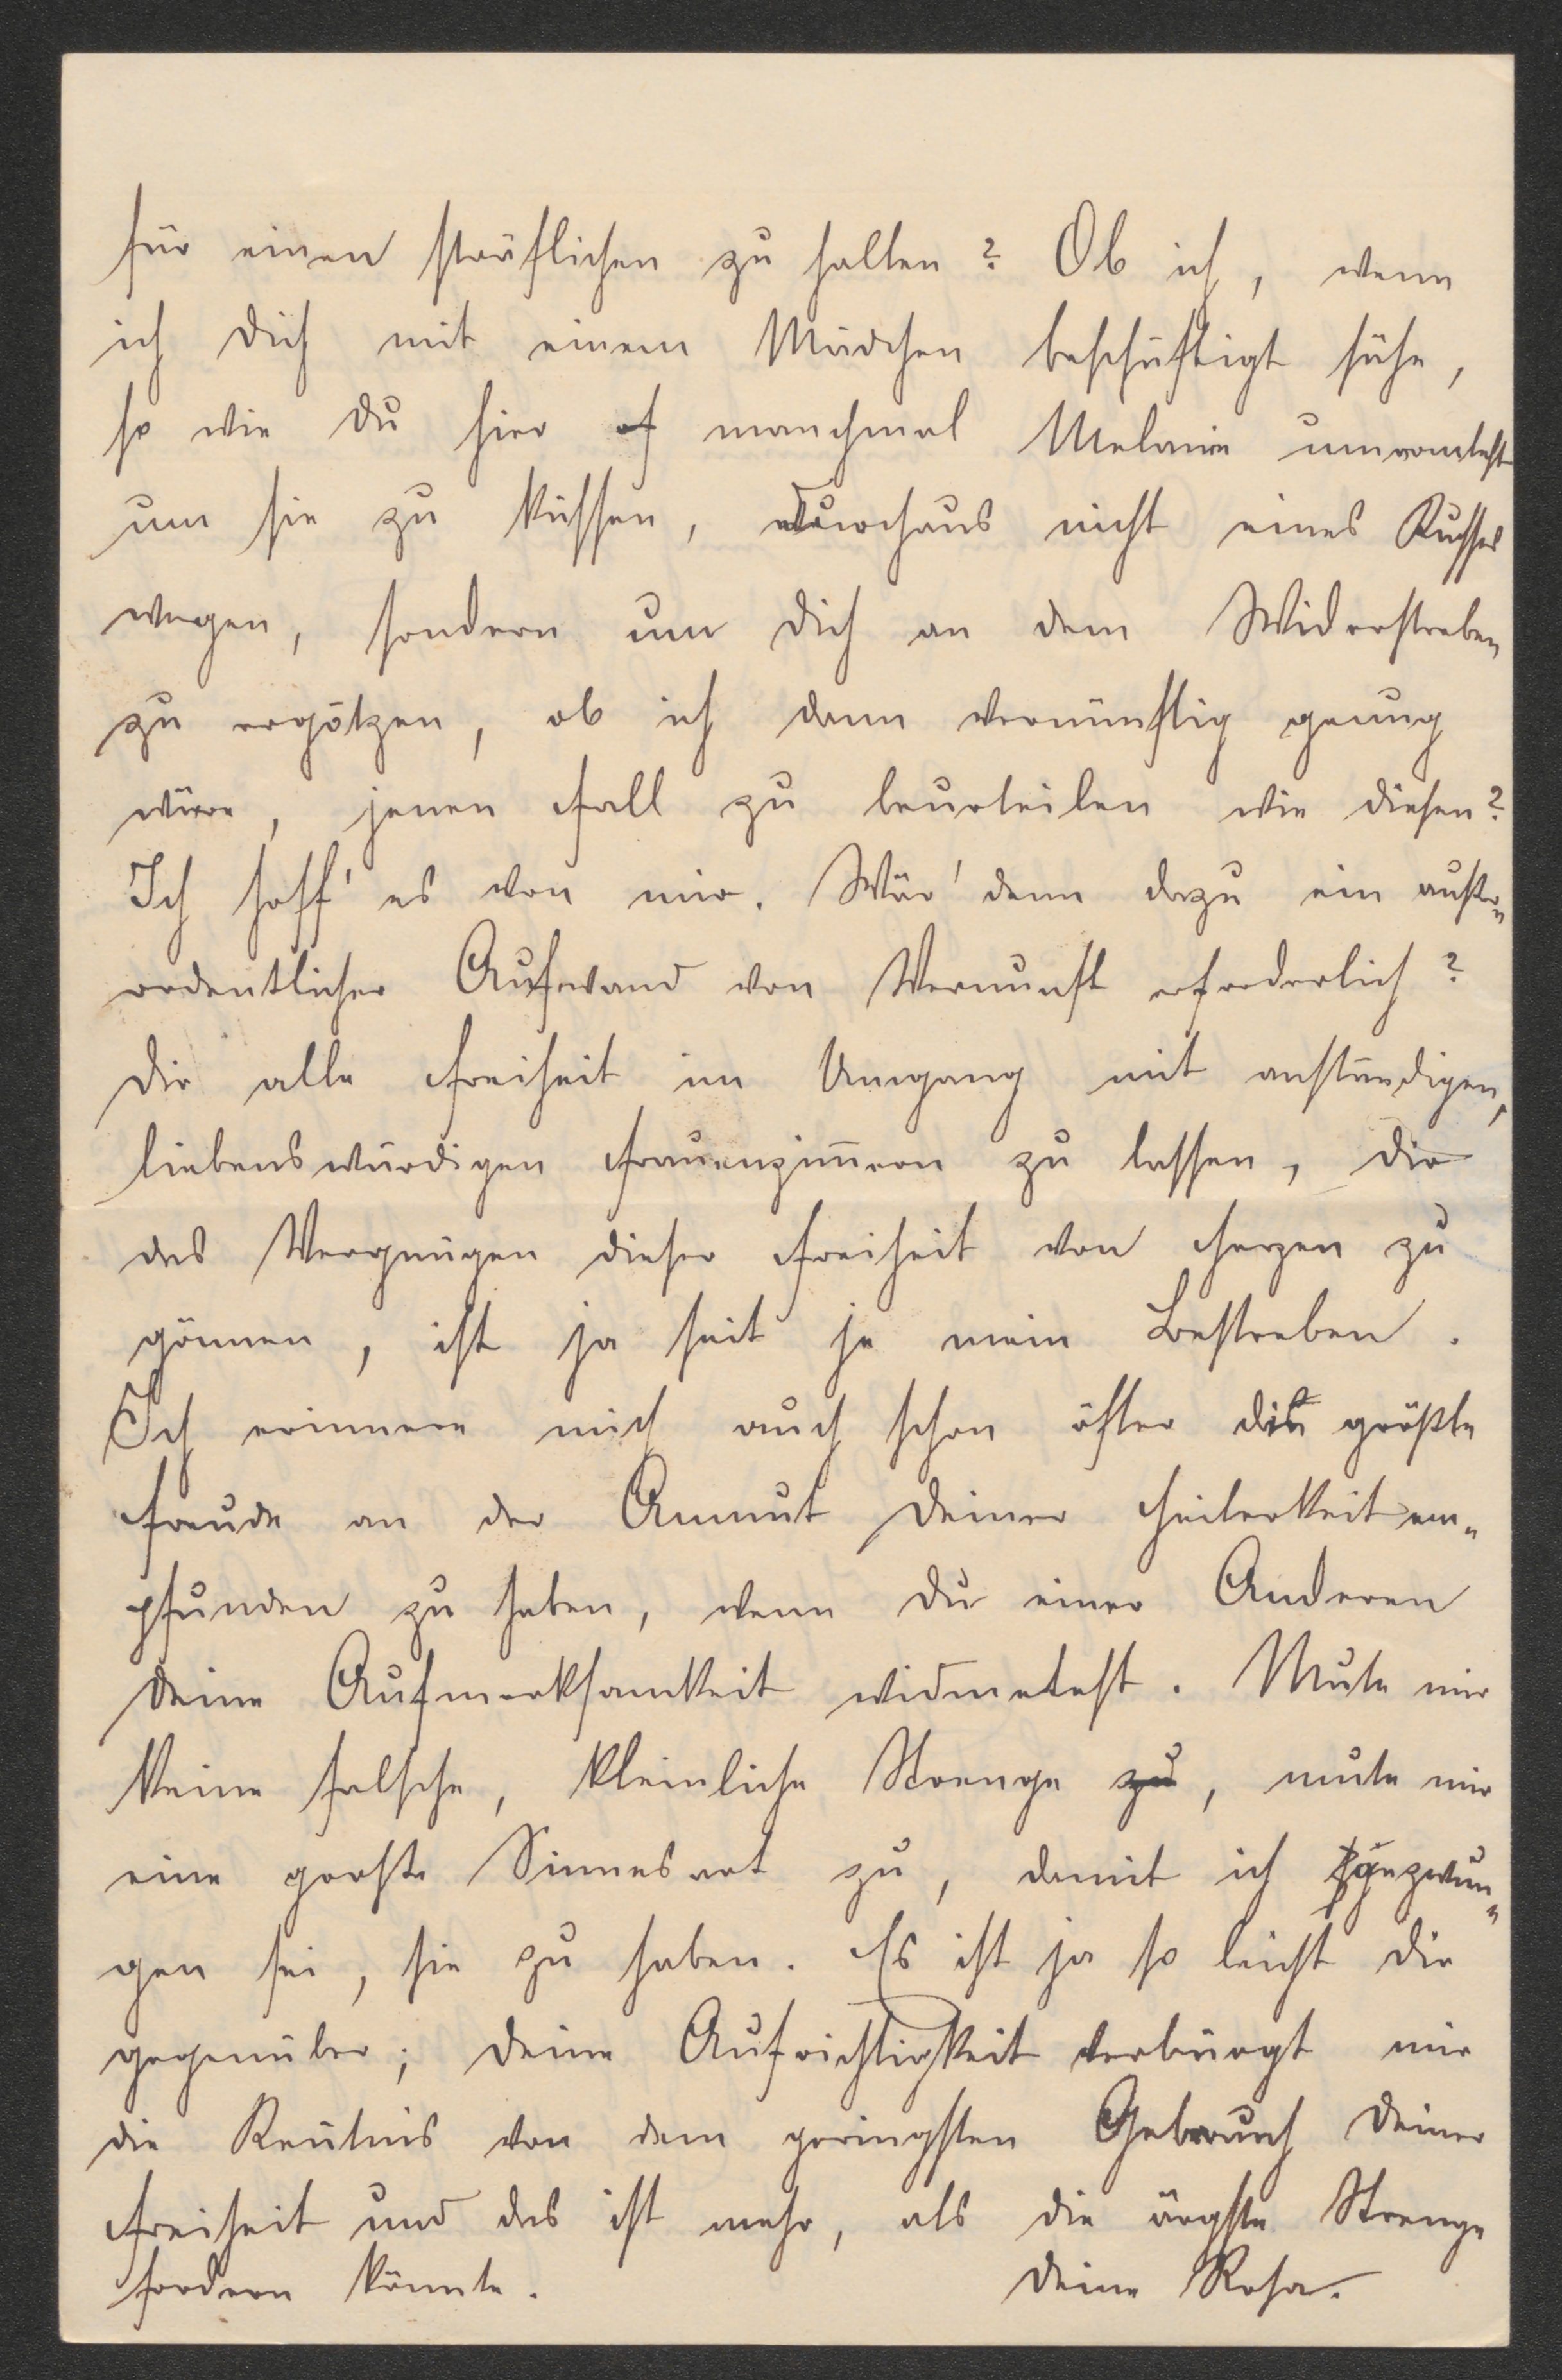 für einen sträflichen zu halten? Ob ich, wenn
ich Dich mit einem Mädchen beschäftigt sähe,
so wie Du hier manchmal Melanie umranntest
um sie zu küssen, durchaus nicht eines Kusses
wegen, sondern um Dich an dem Widerstreben
zu ergötzen, ob ich dann vernünftig genug
wäre, jenen Fall zu beurteilen wie diesen?
Ich hoff' es von mir. Wär' denn dazu ein außer„
ordentlicher Aufwand von Vernunft erforderlich?
Dir alle Freiheit im Umgang mit anständigen,
liebenswürdigen Frauenzim̄ern zu lassen, Dir
das Vergnügen dieser Freiheit von Herzen zu
gönnen, ist ja seit je mein Bestreben.
Ich erinnere mich auch schon öfter die größte
Freude an der Anmut Deiner Heiterkeit em„
pfunden zu haben, wenn Du einer Anderen
Deine Aufmerksamkeit widmetest. Mute mir
keine falsche, kleinliche Strenge zu, mute mir
eine große Sinnesart zu, damit ich gezwun„
gen sei, sie zu haben. Es ist ja so leicht Dir
gegenüber; Deine Aufrichtigkeit verbürgt mir
die Ken̄tnis von dem geringsten Gebrauch Deiner
Freiheit und das ist mehr, als die ärgste Strenge
fordern könnte. Deine Rosa.